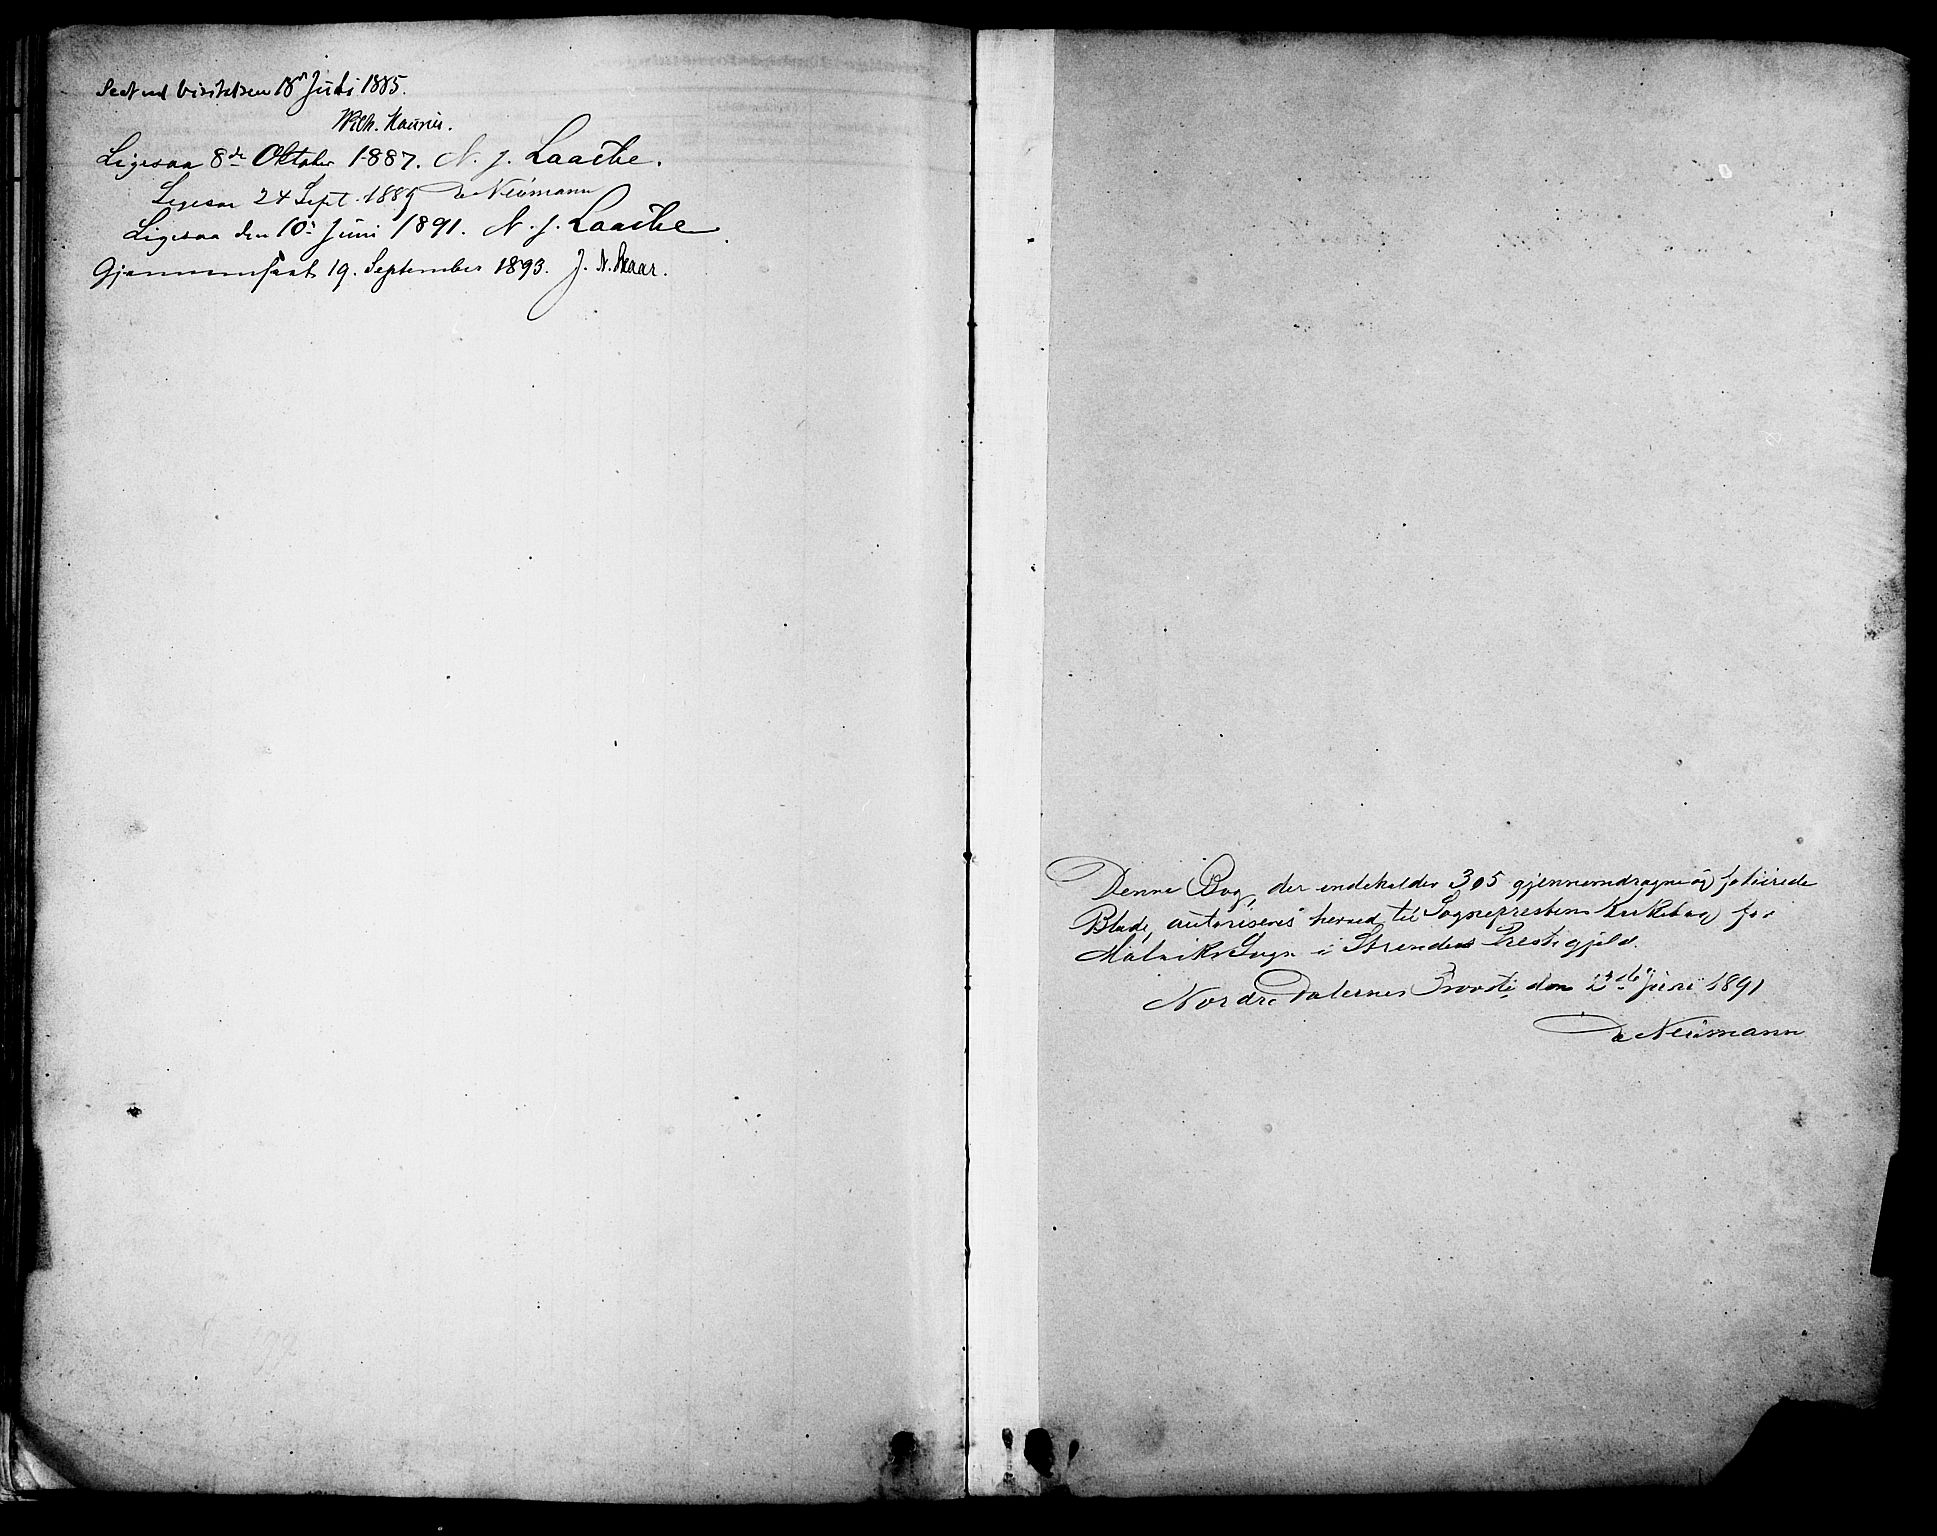 Seet ved Visitatsen 18n Juli 1885.
Wilh. Kaurin.
Ligesaa 8de Oktober 1887. N. J. Laache.
Ligesaa 24 Sept. 1889 de Neumann
Ligesaa den 10' Juni 1891. N. J. Laache
Gjennemseet 19. September 1893. J. N. Skaar.
Denne Bog, der indeholder 305 gjennemdragne og folierede
Blade, autoriseres herved til Sognepresten Kirkebog for
Malviks Sogn i Strindens Prestegjeld.
Nordre Dalernes Provsti den Juni 1891
de Neumann